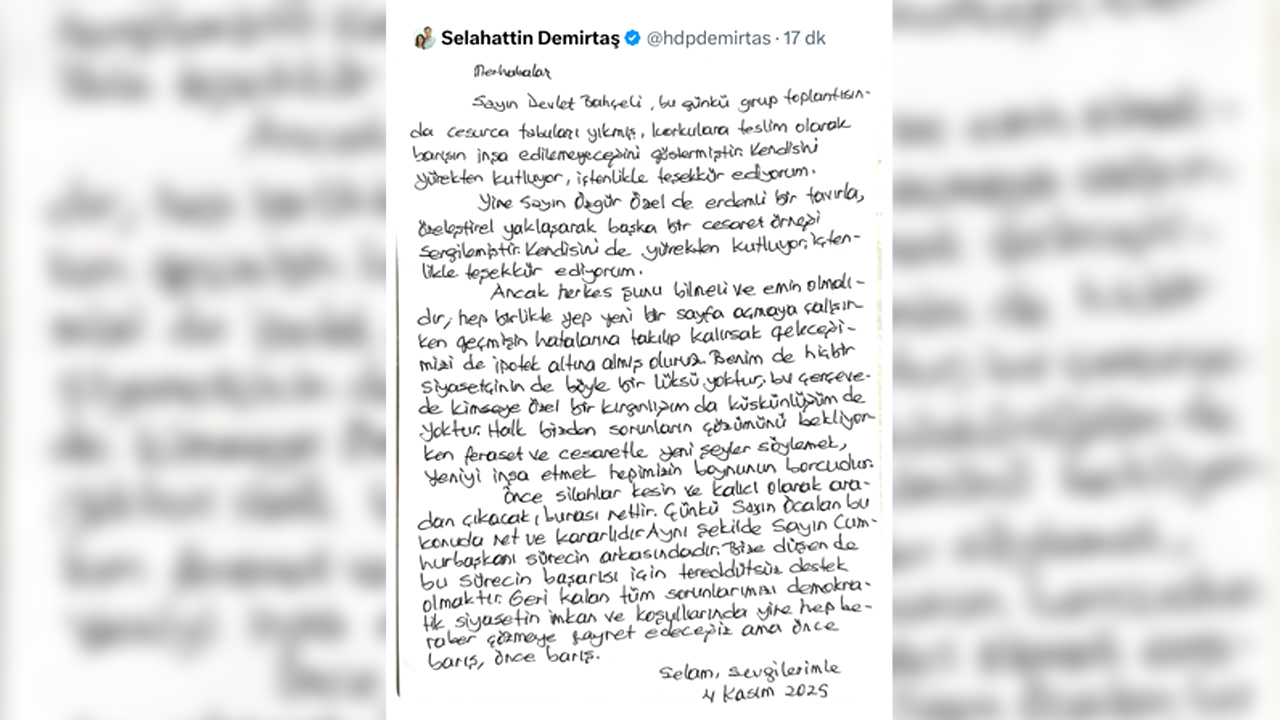 Selahattin Demirtaş @hdpdemirtas · 17 dk
Merhabalar
Sayın Devlet Bahçeli, bu günkü grup toplantısın-
da cesurca tabuları yıkmış, korkulara teslim olarak
barışın inşa edilemeyeceğini göstermiştir. Kendisini
yürekten kutluyor, içtenlikle teşekkür ediyorum.
Yine Sayın Özgür Özel de erdemli bir tavırla,
özeleştirel yaklaşarak başka bir cesaret örneği
sergilemiştir. Kendisini de yürekten kutluyor, içten-
likle teşekkür ediyorum.
Ancak herkes şunu bilmeli ve emin olmalı-
dır, hep birlikte yep yeni bir sayfa açmaya çalışır-
ken geçmişin hatalarına takılıp kalırsak geleceği-
mizi de ipotek altına almış oluruz. Benim de hiçbir
siyasetçinin de böyle bir lüksü yoktur, bu çerçeve-
de kimseye özel bir kırgınlığım da küskünlüğüm de
yoktur. Halk bizden sorunların çözümünü bekliyor-
ken feraset ve cesaretle yeni şeyler söylemek,
yeniyi inşa etmek hepimizin boynunun borcudur.
Önce silahlar kesin ve kalıcı olarak ara-
dan çıkacak, burası nettir. Çünkü Sayın Öcalan bu
konuda net ve kararlıdır. Aynı şekilde Sayın Cum-
hurbaşkanı sürecin arkasındadır. Bize düşen de
bu sürecin başarısı için tereddütsüz destek
olmaktır. Geri kalan tüm sorunlarımızı demokra-
tik siyasetin imkan ve koşullarında yine hep be-
raber çözmeye gayret edeceğiz ama önce
barış, önce barış.
Selam, sevgilerimle
4 Kasım 2025